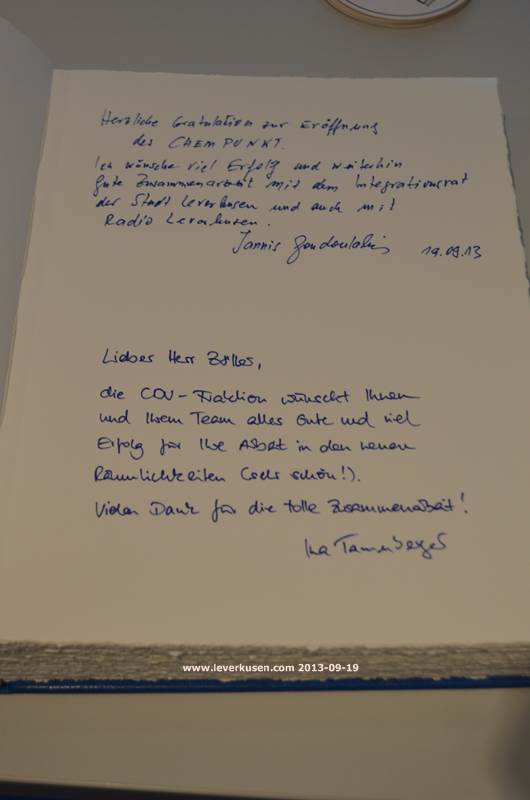 Herzliche Gratulation zur Eröffnung
des CHEMPUNKT.
Ich wünsche viel Erfolg und weiterhin
gute Zusammenarbeit mit dem Integrationsrat
der Stadt Leverkusen und auch mit
Radio Leverkusen.
Jannis 19.09.13
Lieber Herr Zöller,
die CDU-Fraktion wünscht Ihnen
und Ihrem Team alles Gute und viel
Erfolg für Ihre Arbeit in den neuen
Räumlichkeiten (sehr schön!).
Vielen Dank für die tolle Zusammenarbeit!
www.leverkusen.com 2013-09-19